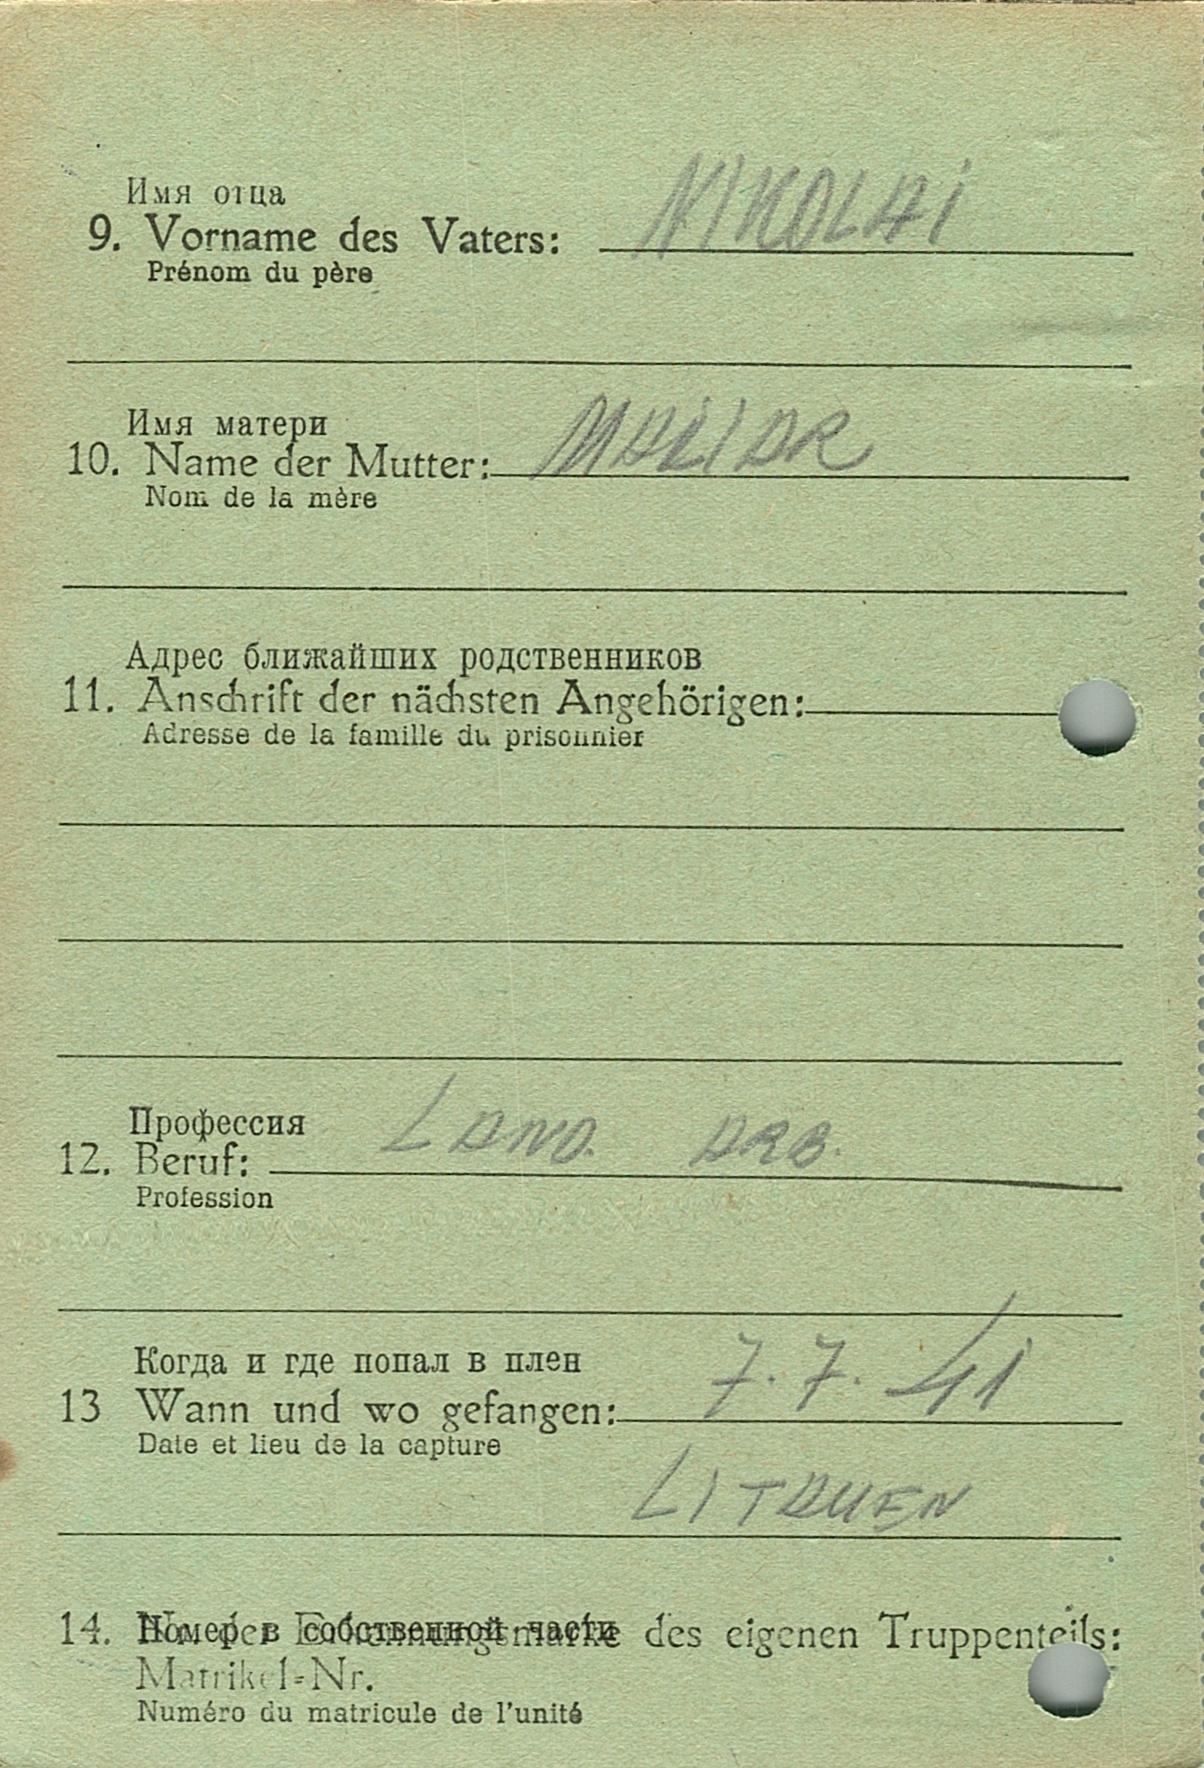 Имя отца
9. Vorname des Vaters: NIKOLAI
Prénom du père
Имя матери
10. Name der Mutter:
Nom de la mère
Адрес ближайших родственников
11. Anschrift der nächsten Angehörigen:
Adresse de la famille du prisonnier
Профессия LAND. ARB.
12. Beruf:
Profession
Когда и где попал в плен 7.7.41
13 Wann und wo gefangen:
Date et lieu de la capture
LITAUEN
Номер в собственной части
14. Nr. der Erkennungsmarke des eigenen Truppenteils:
Matrikel-Nr.
Numéro du matricule de l'unité